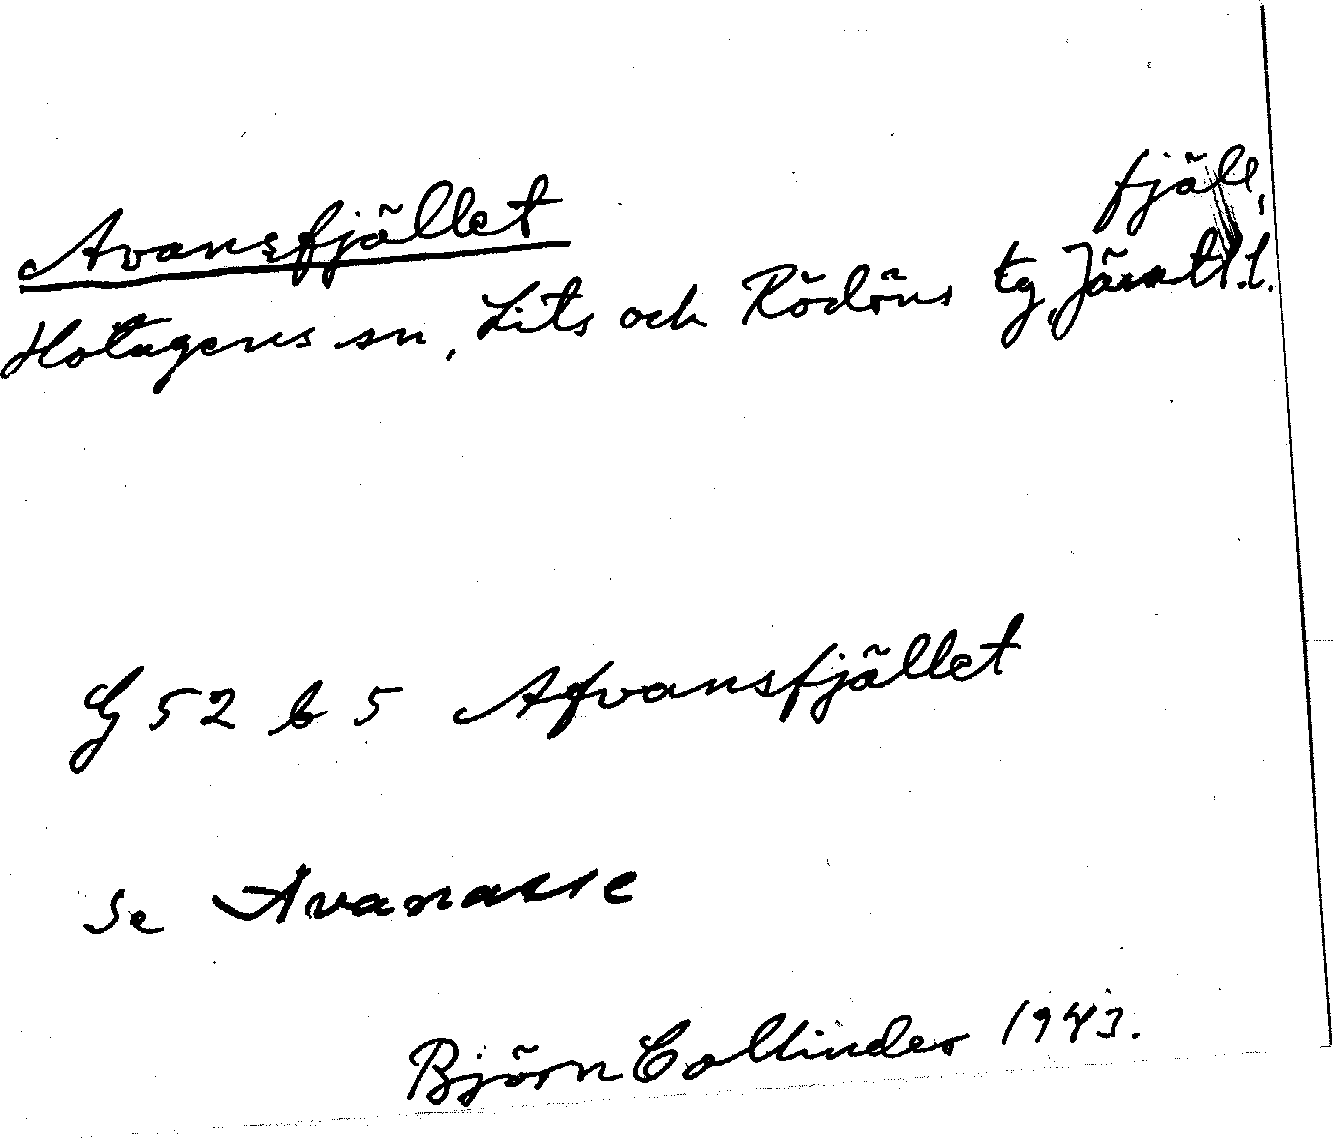 Avansfjället fjäll,
Hotagens sn, Lits och Rödöns tg, Jämtl.l.
G 52 b 5 Afvansfjället
Se Avanasse
Björn Collinder 1943.